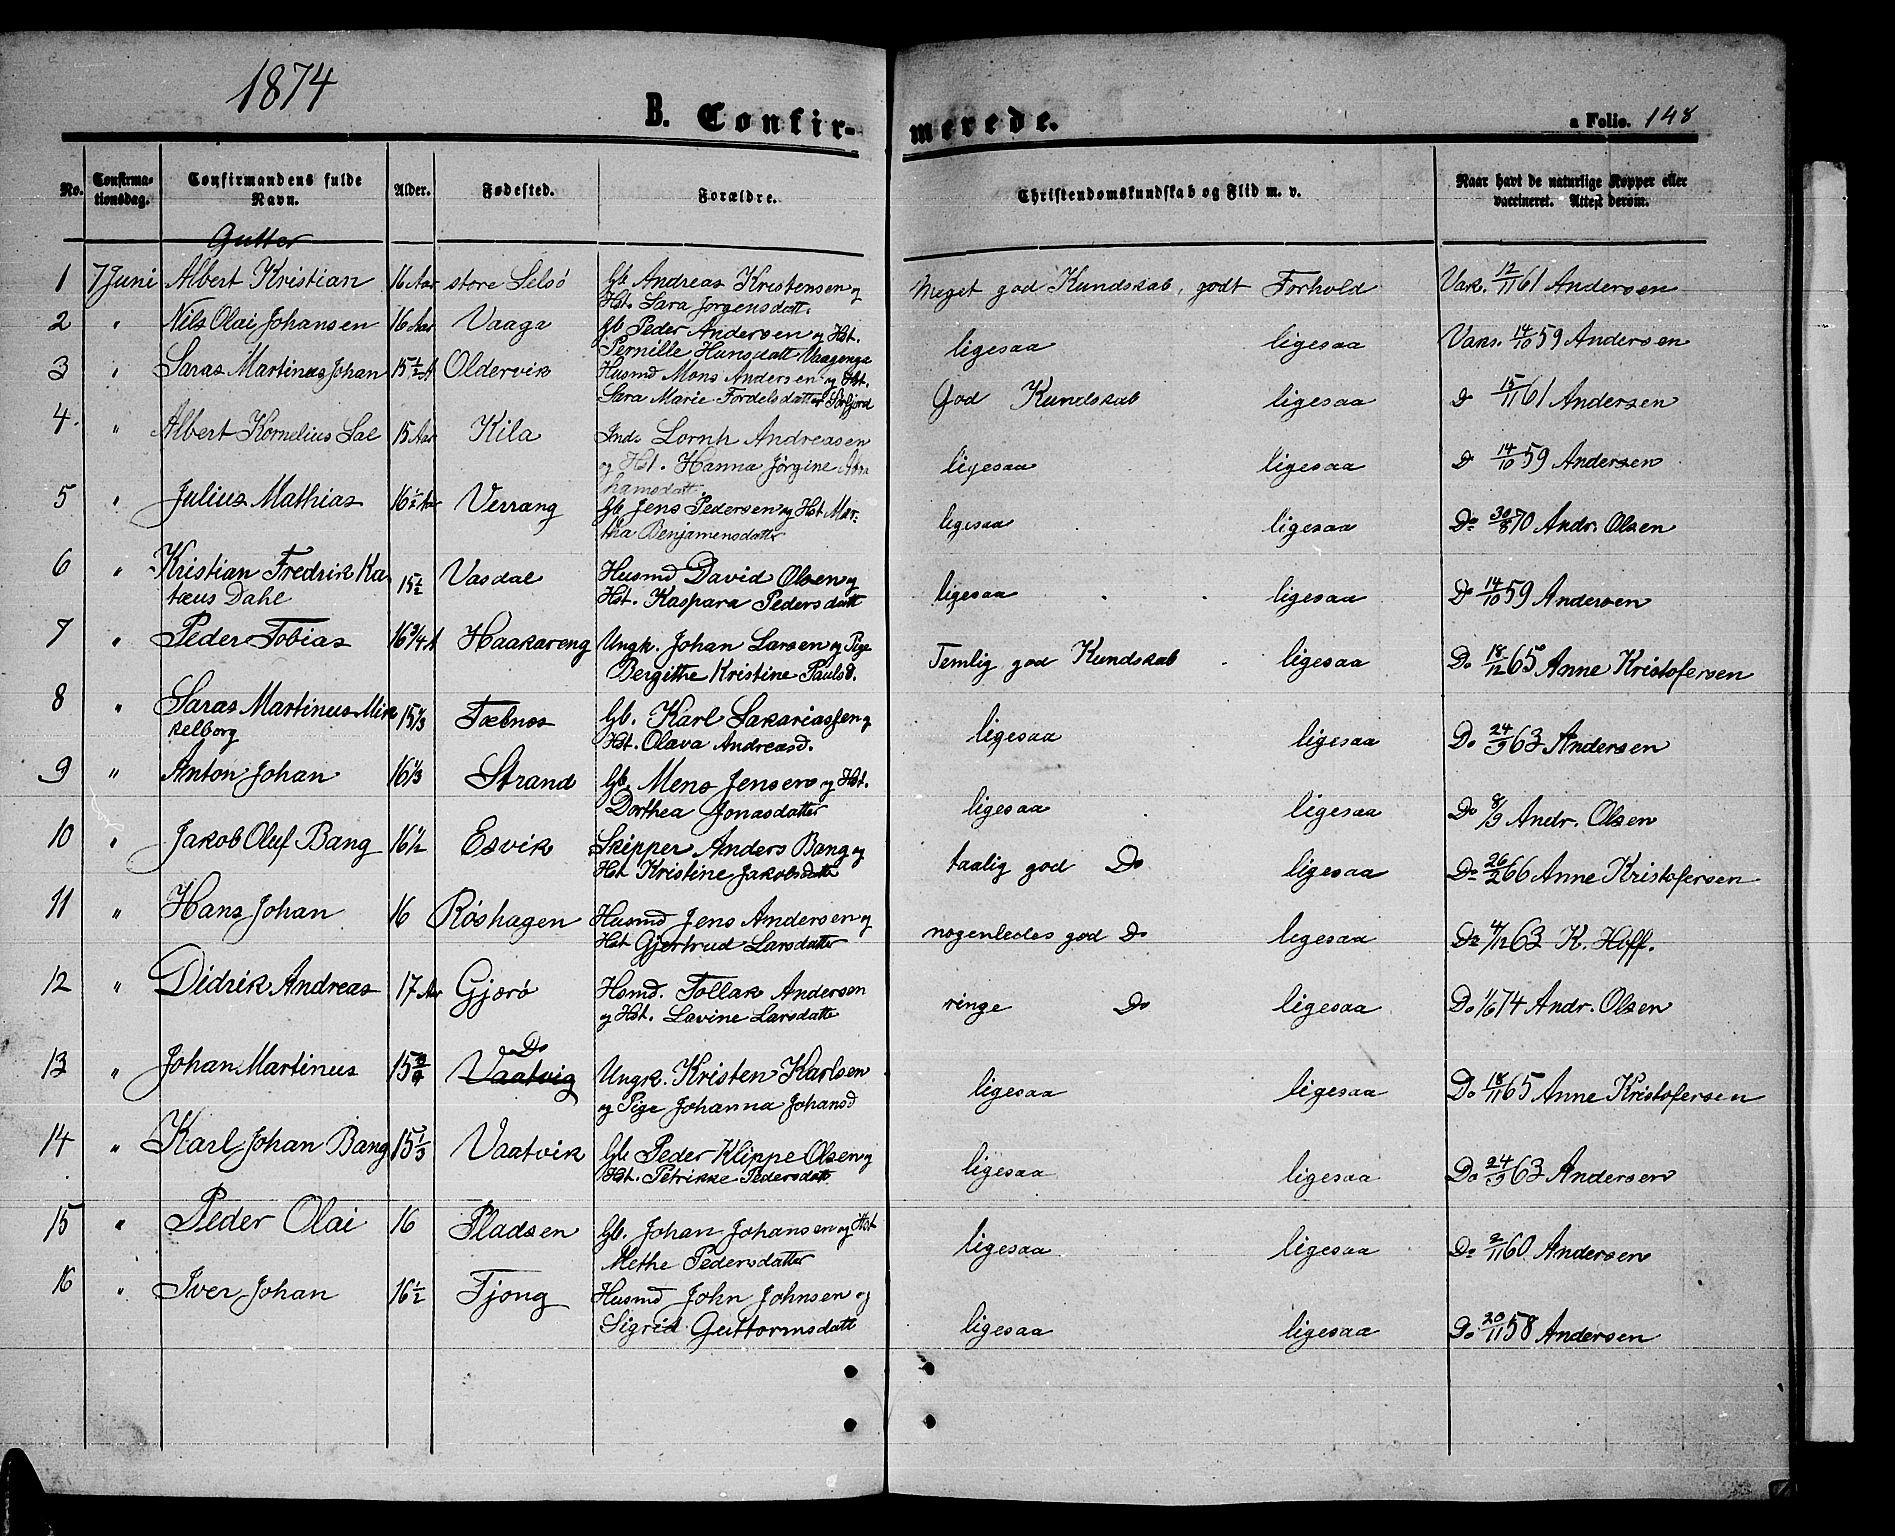 1874
B. Confir-
merede.
a Folio. 148
No. Confirma-tionsdag. Confirmandens fulde Navn. Alder. Fødested. Forældre. Christendomskundskab og Flid m. v. Naar havt de naturlige Kopper eller vaccineret. Attest derom.
Gutter
1 7 Juni Albert Kristian 16 Aar store Selsö Gb Andreas Kristensen og Meget god Kundskab, godt Forhold Vak. 12/11 61 Andersen
Hst. Sara Jørgensdatt.
2 " Nils Olai Johansen 16 Aar Vaaga Gb Peder Andersen og Hst. ligesaa ligesaa Vaks. 14/10 59 Andersen
Pernille Hansdatt Vaagenge
3 " Saras Martinus Johan 15 1/2 A Oldervik Husmd Mons Andersen og Hst. God Kundskab ligesaa Do 15/11 61 Andersen
Sara Marie Fordelsdatter Sørfjord
4. " Albert Kornelius Sal 15 Aar Kila Ind. Lornh Andreasen ligesaa ligesaa Do 14/10 59 Andersen
og Hst. Hanna Jørgine Abra
hamsdatt.
5 " Julius Mathias 16 1/2 Aar Verrang Gb Jens Pedersen og Hst Mar- ligesaa ligesaa Do 30/8 70 Andr. Olsen
tha Benjamensdatter
6 " Kristian Fredrik Ka 15 1/2 Vasdal Husmd David Olsen og ligesaa ligesaa Do 14/10 59 Andersen
tæus Dahl Hst. Kaspara Pedersdatt
7 " Peder Tobias 16 3/4 A Haakareng Ungk. Johan Larsen og Pige Temlig god Kundskab ligesaa Do 18/12 65 Anne Kristofersen
Bergithe Kristine Pauls d.
8 " Saras Martinus Mik 15 1/3 Tæbnes Gb. Karl Sakariassen og ligesaa ligesaa Do 24/9 63 Andersen
kelborg Hst. Olava Andreasd.
9 " Anton Johan 16 1/3 Strand Gb. Mens Jensen og Hst. ligesaa ligesaa Do 8/9 Andr. Olsen
Dorthea Jonasdatter
10 " Jakob Oluf Bang 16 1/2 Esvik Skipper Anders Bang og taalig god Do ligesaa Do 26/2 66 Anne Kristofersen
Hst Kristine Jakobsdatt
11 " Hans Johan 16 Röshagen Husmd Jens Andersen og nogenledes god Do ligesaa Do 4/12 63 K. Hoff.
Hst Gjertrud Larsdatter
12 " Didrik Andreas 17 Aar Gjerö Hsmd. Tollak Andersen ringe Do ligesaa Do 1/6 74 Andr. Olsen
og Hst. Lavine Larsdatt
13 " Johan Martinus 15 3/4 Do Vaatvig Ungk. Kristen Karlsen ligesaa ligesaa Do 18/11 65 Anne Kristofersen
og Pige Johanna Johansd
14 " Karl Johan Bang 15 1/3 Vaatvik Gb Peder Klippe Olsen og ligesaa ligesaa Do 24/9 63 Andersen
Hst. Petrikke Pedersdatt
15 " Peder Olai 16 Pladsen Gb. Johan Johansen og Hst ligesaa ligesaa Do 2/11 60 Andersen
Methe Pedersdatter
16 " Iver Johan 16 1/2 Tjong Husmd John Johnsen og ligesaa ligesaa Do 20/11 58 Andersen
Sigrid Guttormsdatt